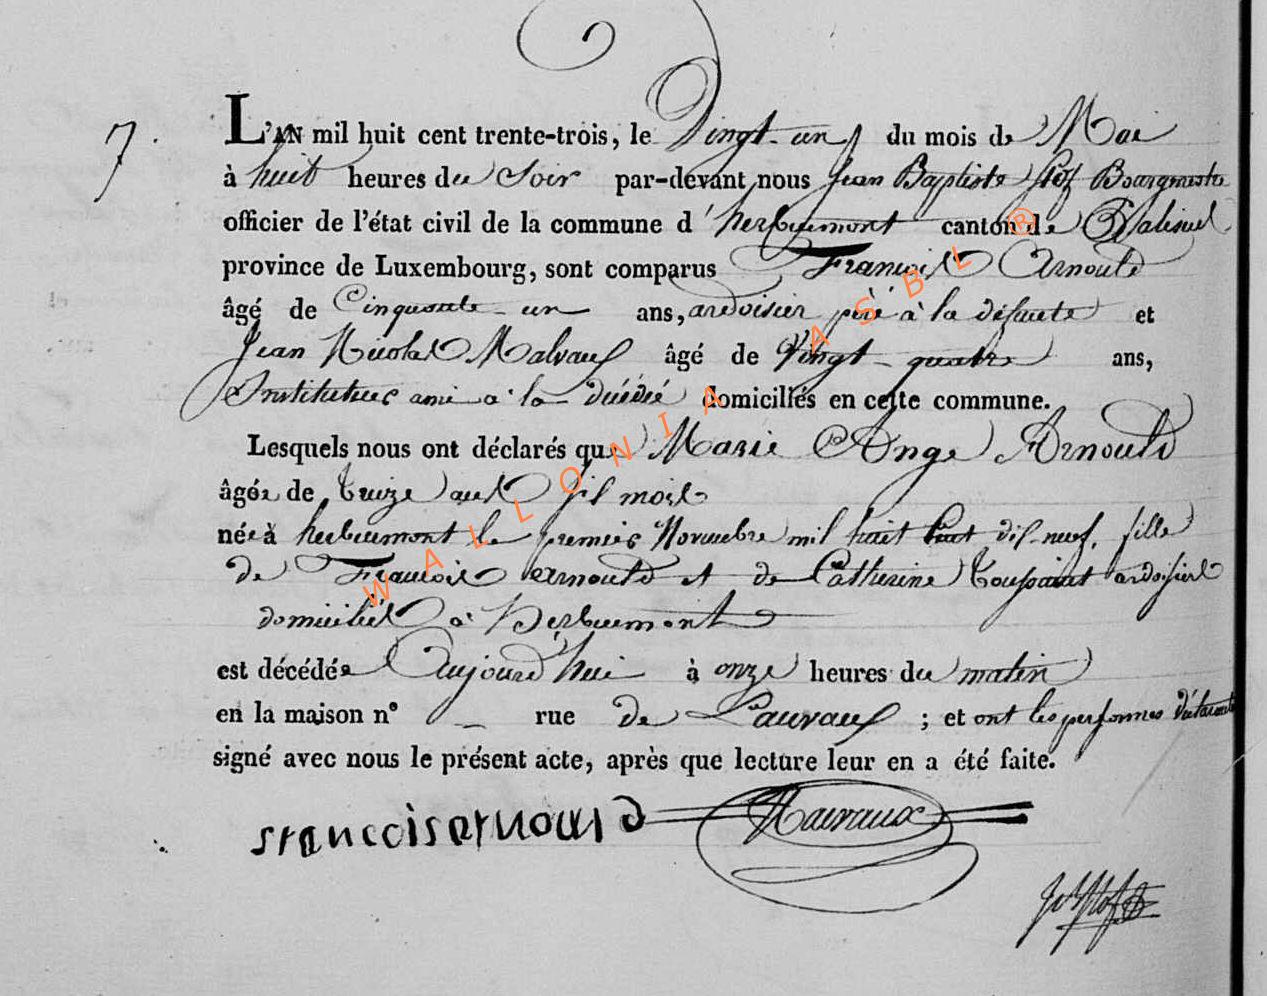 7.
L'AN mil huit cent trente-trois, le Vingt-un du mois de Mai
à huit heures du Soir par-devant nous Jean Baptiste Bourgmestre
officier de l'état civil de la commune d'herbeumont canton de Paliseul
province de Luxembourg, sont comparus François Arnould
âgé de Cinquante-un ans, ardoisier père à la défunte et
Jean Nicolas Malvaux âgé de Vingt-quatre ans,
Instituteur ami à la domiciliés en cette commune.
Lesquels nous ont déclarés que Marie Ange Arnould
âgée de treize ans six mois
née à herbeumont le premier Novembre mil huit Cent dix-neuf, fille
de François arnould et de Catherine Toussaint ardoisiers
domiciliés à Herbeumont
est décédée Aujourd'hui à onze heures du matin
en la maison n° — rue de Lauvaux ; et ont les personnes
signé avec nous le présent acte, après que lecture leur en a été faite.
francois arnould
WALLONIA ASBL ®